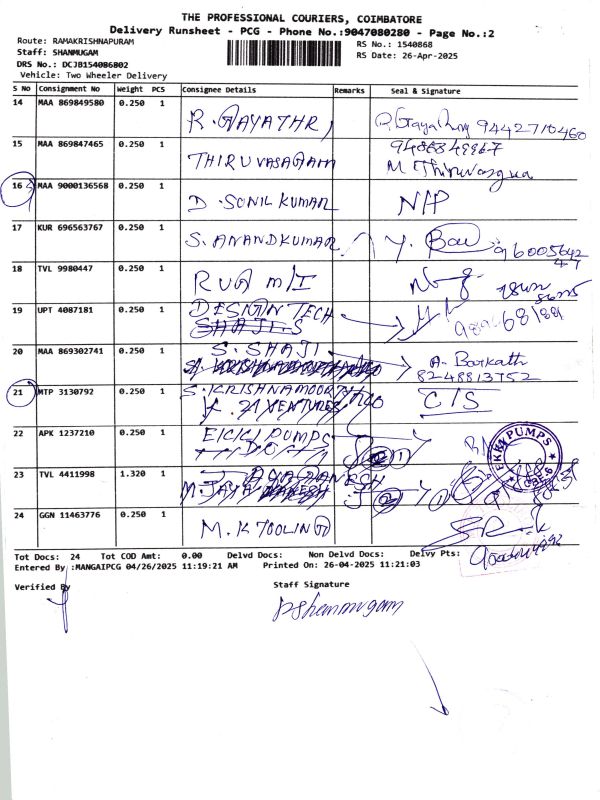 THE PROFESSIONAL COURIERS, COIMBATORE
Delivery Runsheet - PCG - Phone No.:9047080280 - Page No.:2
Route: RAMAKRISHNAPURAM
Staff: SHANMUGAM
RS No.: 1540868
DRS No.: DCJB154086802
RS Date: 26-Apr-2025
Vehicle: Two Wheeler Delivery
S No Consignment No Weight PCS Consignee Details Remarks Seal & Signature
14 MAA 869849580 0.250 1 R. GAYATHRI
15 MAA 869847465 0.250 1 THIRUVASAGAM M Thiruvasgua
16 MAA 9000136568 0.250 1 D. SONIL KUMAR N/P
17 KUR 696563767 0.250 1 S. ANANDKUMAR
18 TVL 9980447 0.250 1 RUG M/I
19 UPT 4087181 0.250 1 DESIGN TECH
SHAJI-S
20 MAA 869302741 0.250 1 S. SHAJI A. Barkath
82-48813752
21 MTP 3130792 0.250 1 S. KRISHNAMOORTH C/S
VENTURES
22 APK 1237210 0.250 1 EKKI PUMPS EKKI PUMPS
23 TVL 4411998 1.320 1
M. JAYA
24 GGN 11463776 0.250 1 M. K TOOLING
Tot Docs: 24 Tot COD Amt: 0.00 Delvd Docs: Non Delvd Docs: Delvy Pts:
Entered By :MANGAIPCG 04/26/2025 11:19:21 AM Printed On: 26-04-2025 11:21:03
Verified By Staff Signature
pshanmugam